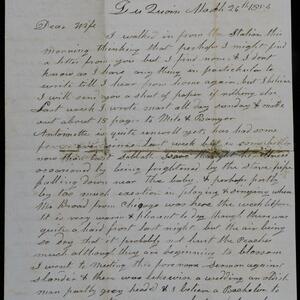 Du Quoin March 26th
Dear Wife
I walked in from the Station this
morning thinking that perhaps I might find
a letter from you but I find none & I dont
know as I have any thing in particular to
write till I hear from you again but I believe
I will send you a sheet of paper if nothing else
Last week I wrote most all day sunday & made
out about 18 pages to Milo & Bangor
Antoinette is quite unwell yet, has had some
fever Last week but is comfortable
now
occasioned by being frightened by the stove pipe
falling down near the baby, & perhaps partly
by too much exertion in playing & singing when
Mr from Chicago was here the week before
It is very warm & pleasant to day though there was
quite a hard frost last night but the air being
so dry that it probably did not hurt the Peaches
much although they are beginning to blossom
I went to Meeting this forenoon Sermon against
slander & there was a wedding an oldish
man partly gray headed & I believe a Bachelor to